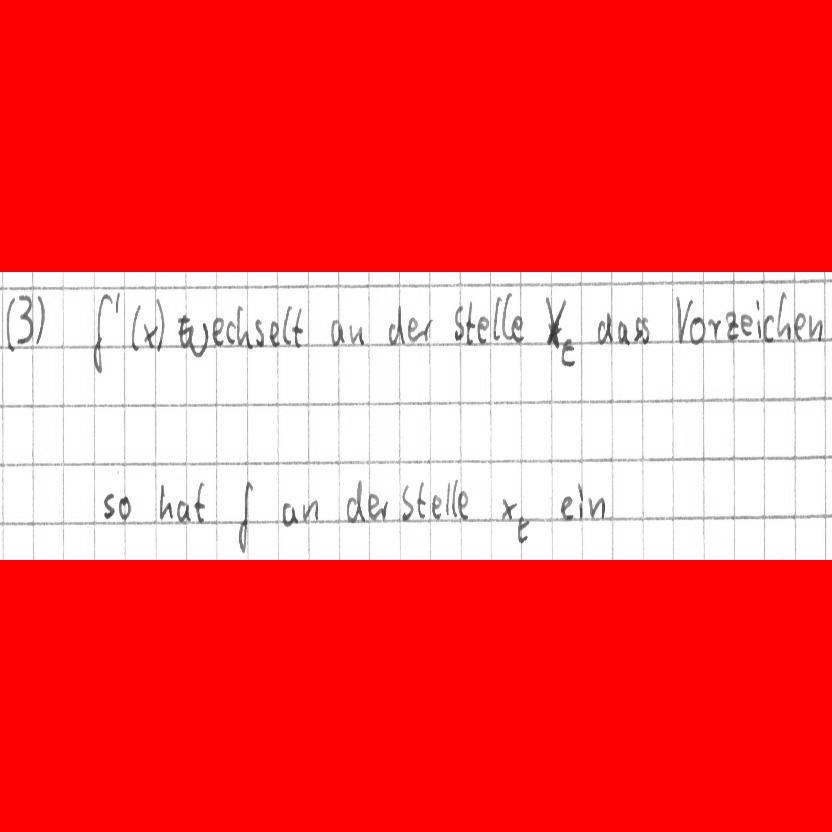 (3) f'(x) wechselt an der Stelle x_t dass Vorzeichen
so hat f an der Stelle x_t ein